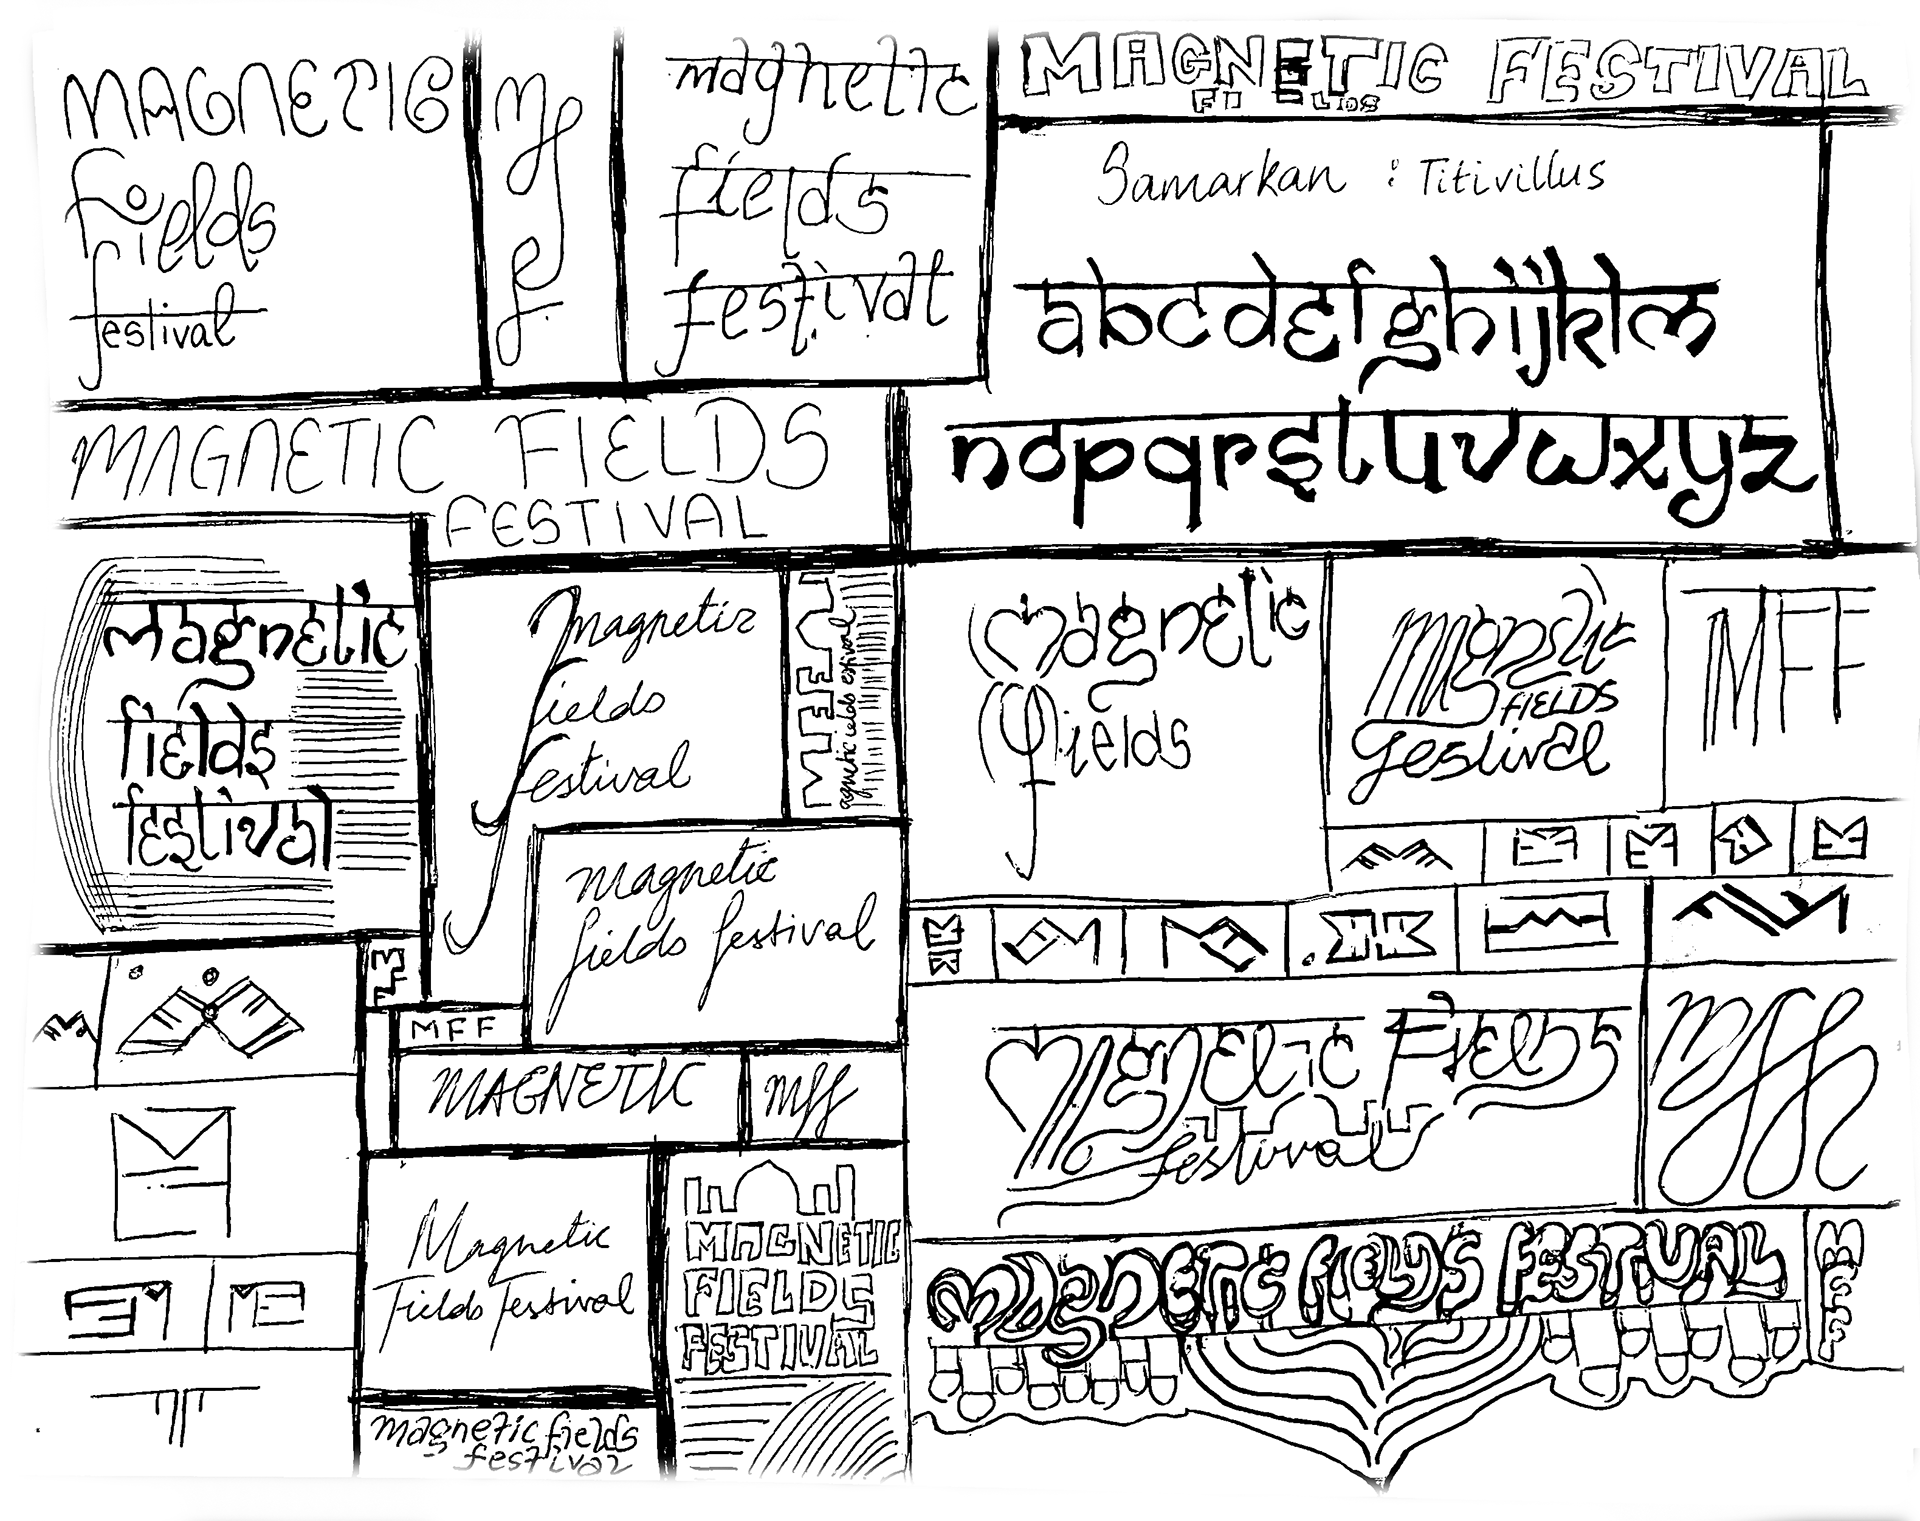 MAGNETIC
fields
festival
mf
f
magnetic
fields
festival
MAGNETIC FESTIVAL
FIELDS
Samarkan : Titivillus
abcdefghijklm
nopqrstuvwxyz
MAGNETIC FIELDS
FESTIVAL
magnetic
fields
festival
magnetic
fields
festival
MFF
agnetic ields estival
magnetic
fields
magnetic
FIELDS
festival
MFF
magnetic
fields festival
MFF
MAGNETIC
mff
magnetic Fields
festival
mff
Magnetic
Fields Festival
MAGNETIC
FIELDS
FESTIVAL
magnetic fields festival
MFF
magnetic fields
festival